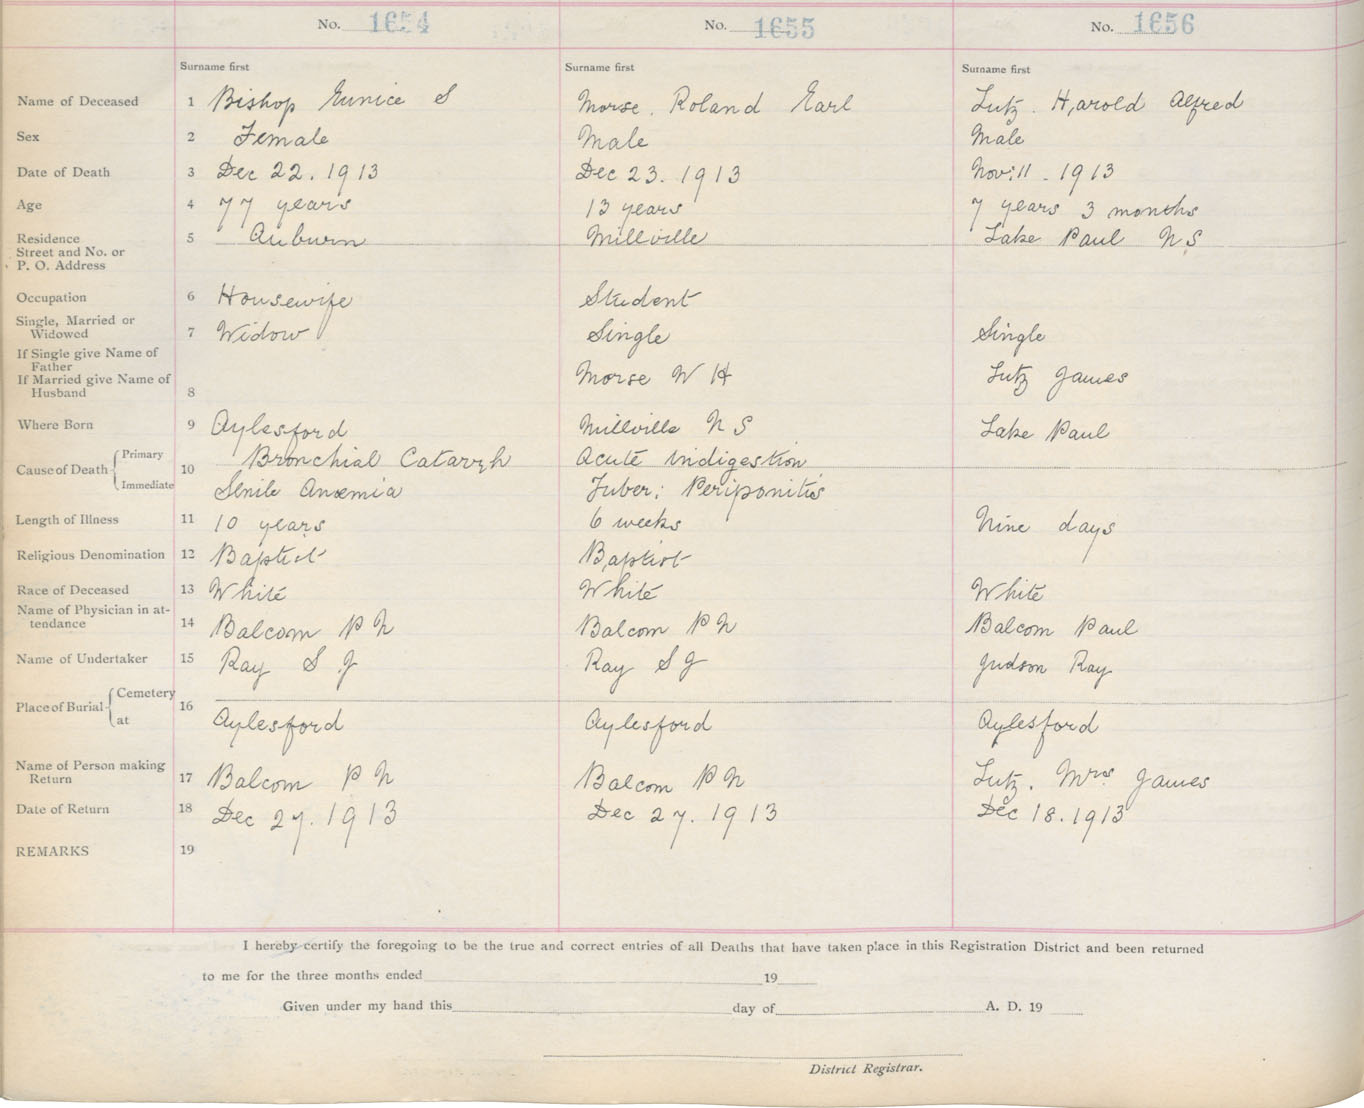 No. 1654 No. 1655 No. 1656
Surname first Surname first Surname first
Name of Deceased 1 Bishop Eunice S Morse. Roland Earl Lutz. Harold Alfred
Sex 2 Female Male Male
Date of Death 3 Dec 22. 1913 Dec 23. 1913 Nov: 11. 1913
Age 4 77 years 13 years 7 years 3 months
Residence 5 Auburn Millville Lake Paul N S
Street and No. or
P. O. Address
Occupation 6 Housewife Student
Single, Married or
Widowed 7 Widow Single Single
If Single give Name of
Father
If Married give Name of Morse W H Lutz James
Husband 8
Where Born 9 Aylesford Millville N S Lake Paul
Cause of Death Primary 10 Bronchial Catarrh Acute indigestion
Immediate Senile Anæmia Tuber: Periponitis
Length of Illness 11 10 years 6 weeks Nine days
Religious Denomination 12 Baptist Baptist
Race of Deceased 13 White White White
Name of Physician in at-
tendance 14 Balcom P N Balcom P N Balcom Paul
Name of Undertaker 15 Ray S J Ray S J Judson Ray
Place of Burial Cemetery 16
at Aylesford Aylesford Aylesford
Name of Person making
Return 17 Balcom P N Balcom P N Lutz. Mrs James
Date of Return 18 Dec 27. 1913 Dec 27. 1913 Dec 18. 1913
REMARKS 19
I hereby certify the foregoing to be the true and correct entries of all Deaths that have taken place in this Registration District and been returned
to me for the three months ended 19
Given under my hand this day of A. D. 19
District Registrar.